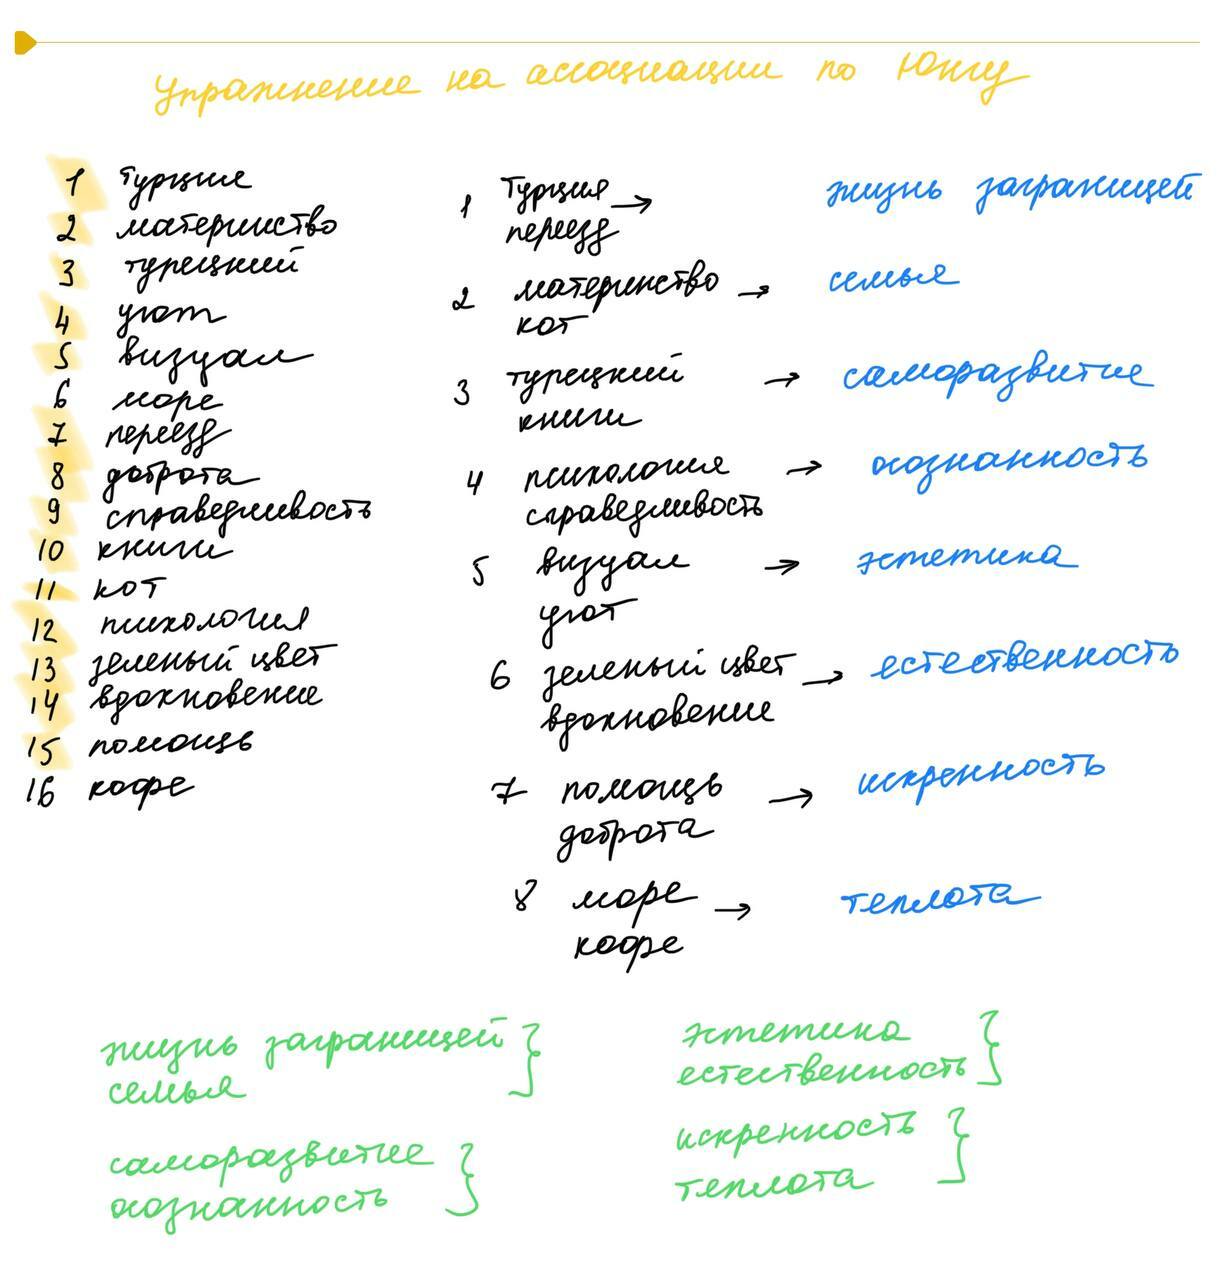 Упражнение на ассоциации по Юнгу
1 Турция
2 материнство
3 турецкий
4 уют
5 визуал
6 море
7 переезд
8 доброта
9 справедливость
10 книги
11 кот
12 психология
13 зеленый цвет
14 вдохновение
15 помощь
16 кофе
1 Турция → жизнь заграницей
переезд
2 материнство → семья
кот
3 турецкий → саморазвитие
книги
4 психология → осознанность
справедливость
5 визуал → эстетика
уют
6 зеленый цвет → естественность
вдохновение
7 помощь → искренность
доброта
8 море → теплота
кофе
жизнь заграницей }
семья
саморазвитие }
осознанность
эстетика }
естественность
искренность }
теплота